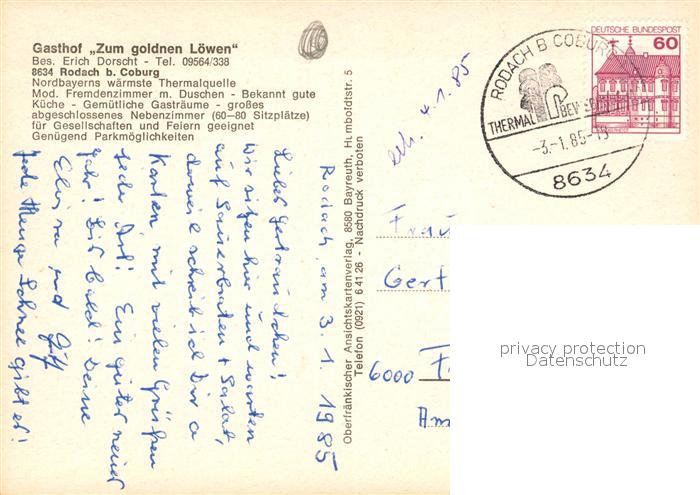 Gasthof „Zum goldnen Löwen"
Bes. Erich Dorscht - Tel. 09564/338
8634 Rodach b. Coburg
Nordbayerns wärmste Thermalquelle
Mod. Fremdenzimmer m. Duschen - Bekannt gute
Küche - Gemütliche Gasträume - großes
abgeschlossenes Nebenzimmer (60-80 Sitzplätze)
für Gesellschaften und Feiern geeignet
Genügend Parkmöglichkeiten
Rodach, am 3. 1. 1985
Liebes Gertraudchen!
Wir sitzen hier und warten
auf Sauerbraten + Salat,
derweil schreib ich Dir a
Karten mit vielen Grüßen
jeder Art! Ein guter neues
Jahr! Bis bald! Deine
und
jede Menge Schnee gibt es!
Oberfränkischer Ansichtskartenverlag, 8580 Bayreuth, Humboldtstr. 5
Telefon (0921) 6 41 26 - Nachdruck verboten
erh. 4.1.85
RODACH B COBURG
THERMAL
-3.-1.85-
8634
DEUTSCHE BUNDESPOST
60
Frau
Gert
6000 F
Am
privacy protection
Datenschutz